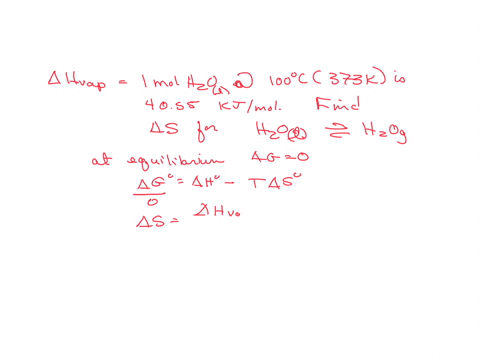 ΔHvap = 1 mol H₂O(l) @ 100°C (373K) is
40.55 KJ/mol. Find
ΔS for H₂O(l) ⇌ H₂Og
at equilibrium ΔG = 0
ΔG° = ΔH° - TΔS°
0
ΔS = ΔHva